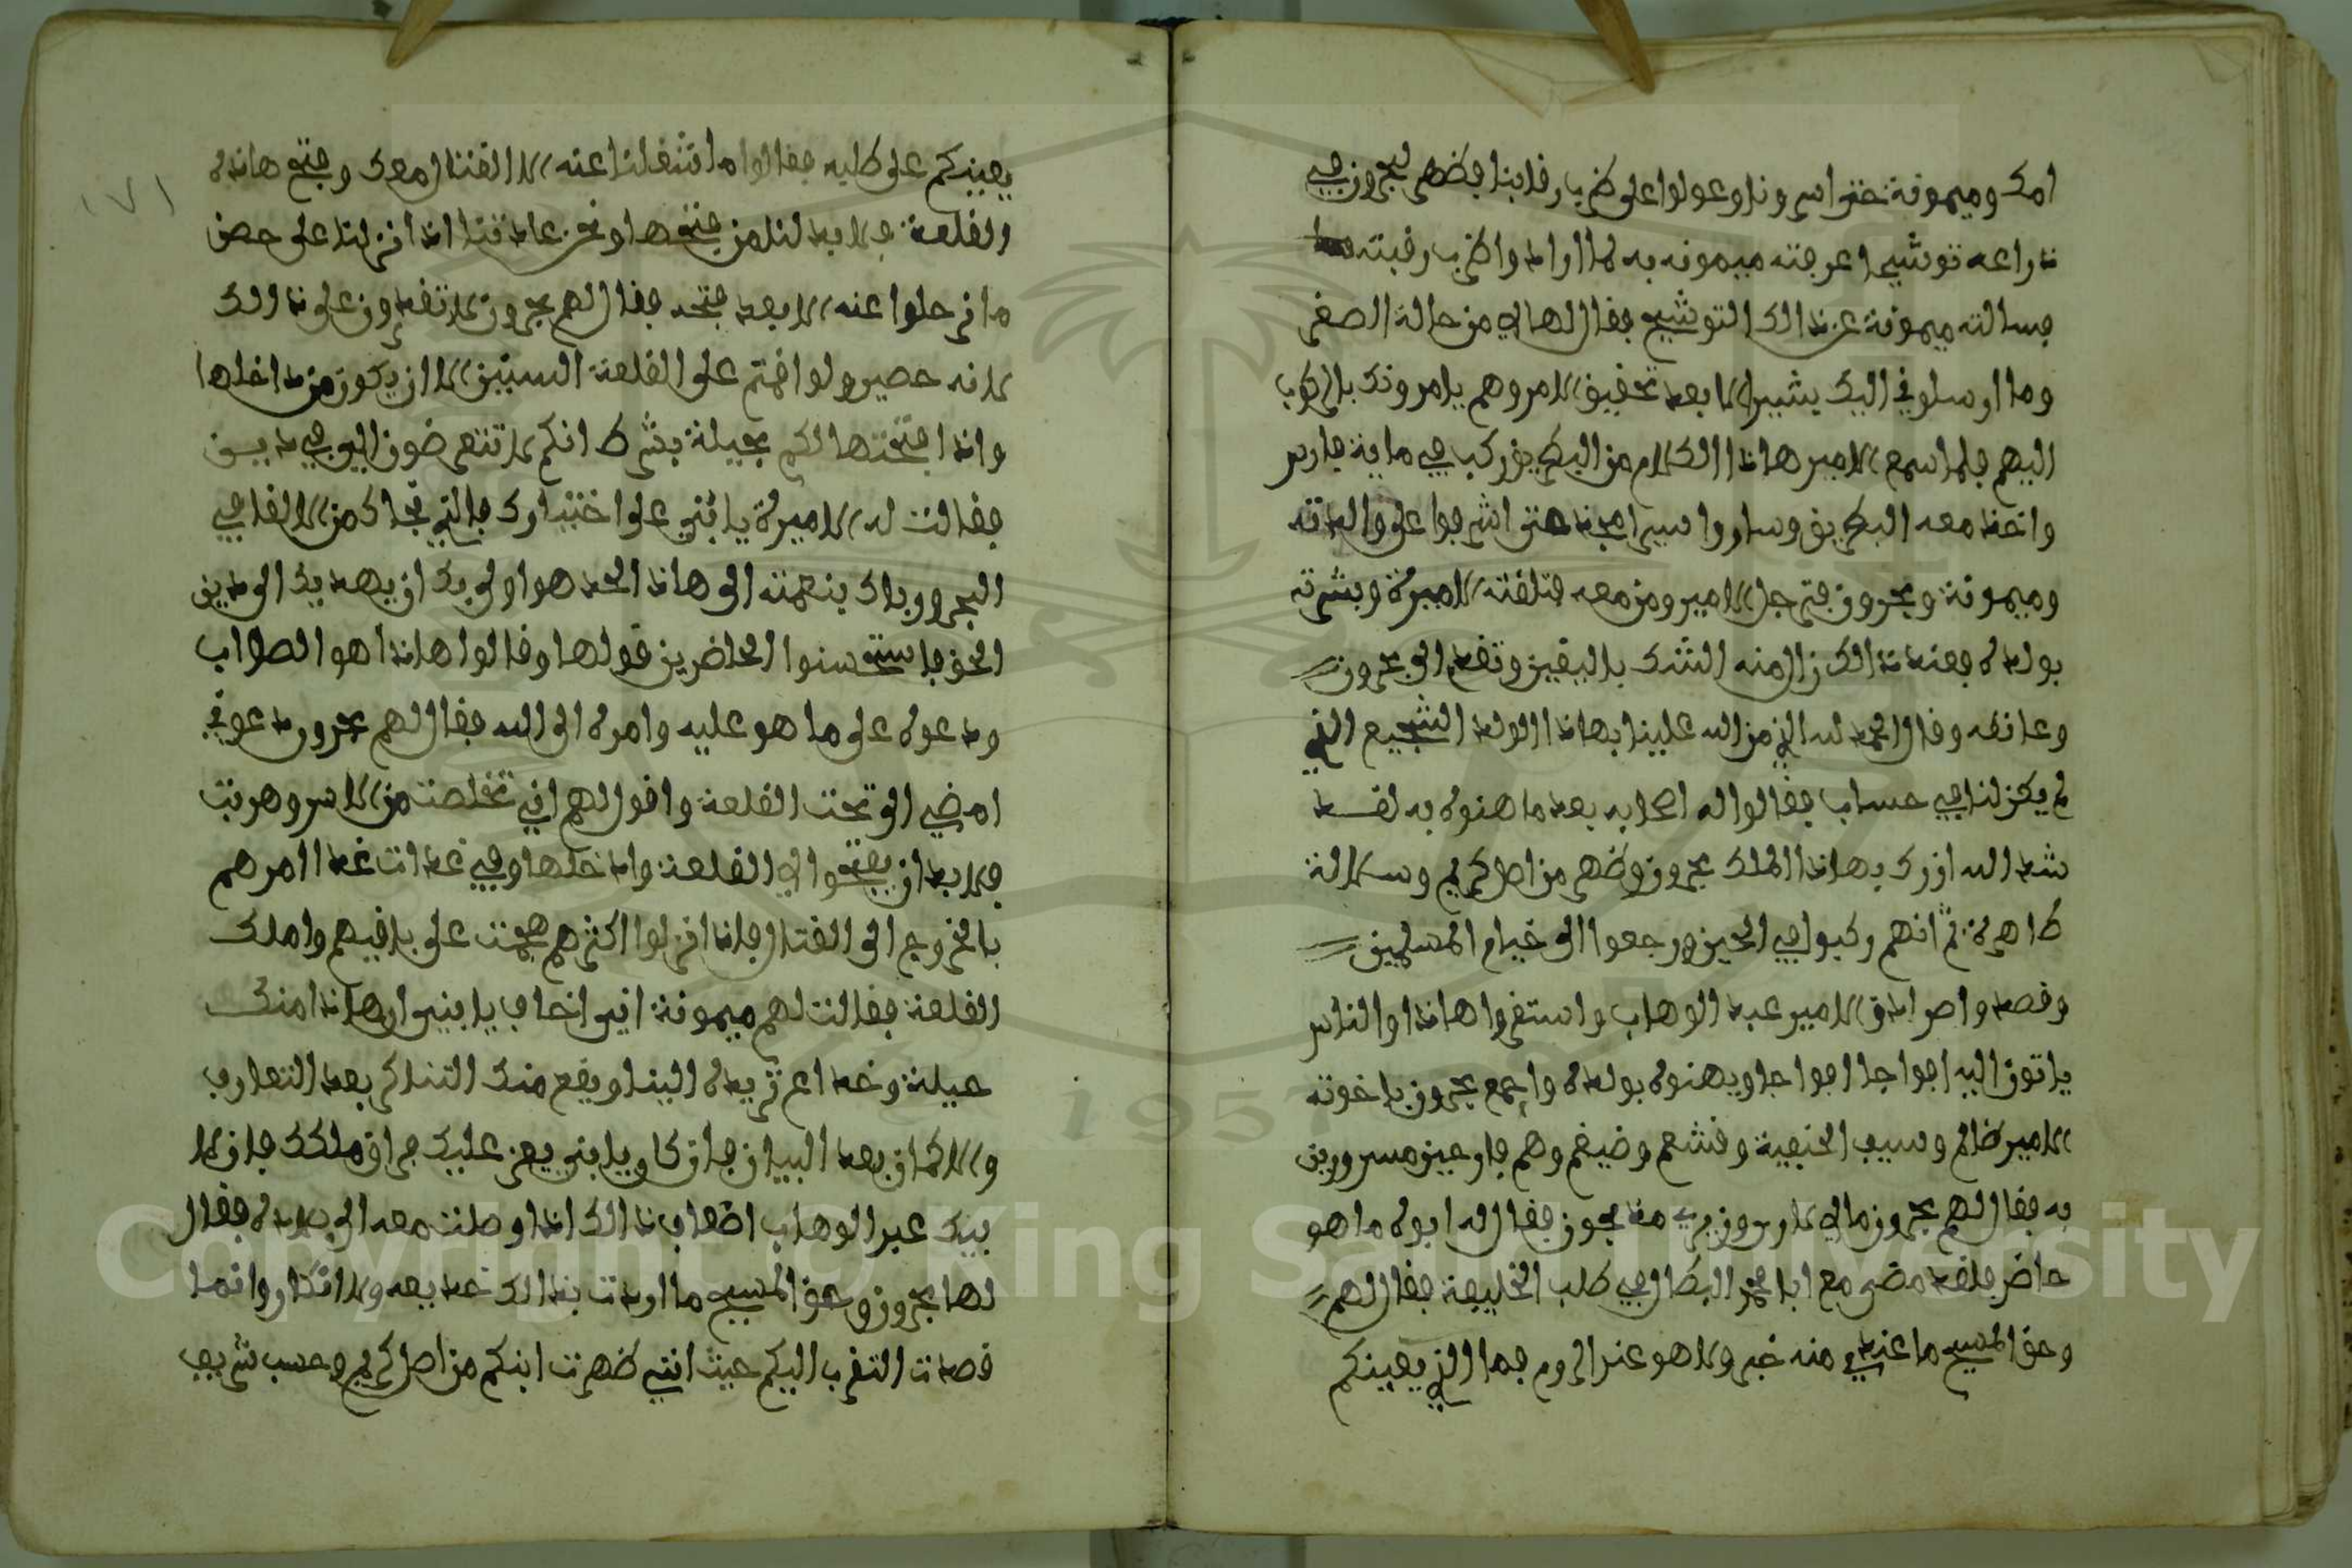 امك وميمونة حتى اسرونا وعولوا على ضرب رقابنا فظهر لبحرون في
ذراعه توشيم اعرفته ميمونه به لما ارادوا ضرب رقبته
فسالته ميمونة عن ذالك التوشيم فقال لها لي من حالة الصغر
وما ارسلوني اليك يشير الا بعد تحقيق الامر وهم يامرونك بالركوب
اليهم فلما سمع الامير هاذا الكلام من البطريق ركب في ماية فارس
واخذ معه البطريق وساروا سير احديد حتى اشرفوا على والدته
وميمونة وبحرون فترجل الامير ومن معه فتلقته الاميرة وبشرته
بولده فعند ذالك زال منه الشك باليقين وتقدم الى بحرون
وعانقه وقال الحمد لله الذي من الله علينا بهاذا الولد الشجيع الذي
لم يكن لنا في حساب فقالوا له اصحابه بعد ما هنوه به لقد
شد الله ازرك بهاذا الملك بحرون وظهر من اصل كريم وسلالة
طاهرة ثم انهم ركبوا في الحين ورجعوا الى خيام المسلمين
وقصدوا صرادق الامير عبد الوهاب واستقروا هاذا والناس
ياتون اليه افواجا افواجا ويهنوه بولده واجمع بحرون باخوته
الامير ظالم وسيف الحنيفية وقشعم وضيغم وهم فارحين مسرورين
به فقال لهم بحرون مالي لا ارى وزيري منجون فقال له ابوه ما هو
حاضر فلقد مضى مع ابا محمد البطال في طلب الخليفة فقال لهم
وحق المسيح ما عندي منه خبر ولا هو عند الروم فما الذي يعينكم
يعينكم على طلبه فقالوا ما اشغلنا عنه الا القتال معك وفتح هاذه
القلعة فلا بد لنا من فتحها ونحن عادتنا اذا نزلنا على حصن
ما نرحلوا عنه الا بعد فتحه فقال لهم بحرون لا تقدرون على ذالك
لانه حصير ولو اقمتم على القلعة السنين الا ان يكون من داخلها
وانا افتحتها لكم بحيلة بشرط انكم لا تتعرضون الي في ديني
فقالت له الاميرة يا بني على اختيارك فالذي نجاك من الافاعي
البحر ورباك بنعمته الى هاذا الحد هو اولى بك ان يهديك الى دين
الحق فاستحسنوا الحاضرين قولها وقالوا هاذا هو الصواب
ودعوه على ما هو عليه وامره الى الله فقال لهم بحرون دعوني
امضي الى تحت القلعة واقول لهم اني تخلصت من الاسر وهربت
فلا بد ان يفتحوا لي القلعة وادخلها وفي غداة غد امرهم
بالخروج الى القتال فاذا نزلوا اكثرهم هجمت على باقيهم واملك
القلعة فقالت لهم ميمونة اني اخاف يا بني ان هاذا منك
حيلة وخداع تريده الينا ويقع منك التناكر بعد التعارف
والاكمان بعد البيان فان كان يا بني يعز عليك فراق ملكك فان لا
بيك عبد الوهاب اضعاف ذالك اذا وصلت معه الى بلاده فقال
لها بحرون وحق المسيح ما اردت بذالك خديعه ولا انكار وانما
قصدت التقرب اليكم حيث انني ظهرت ابنكم من اصل كريم وحسب شريف
١٧١
Copyright © King Saud University
1957